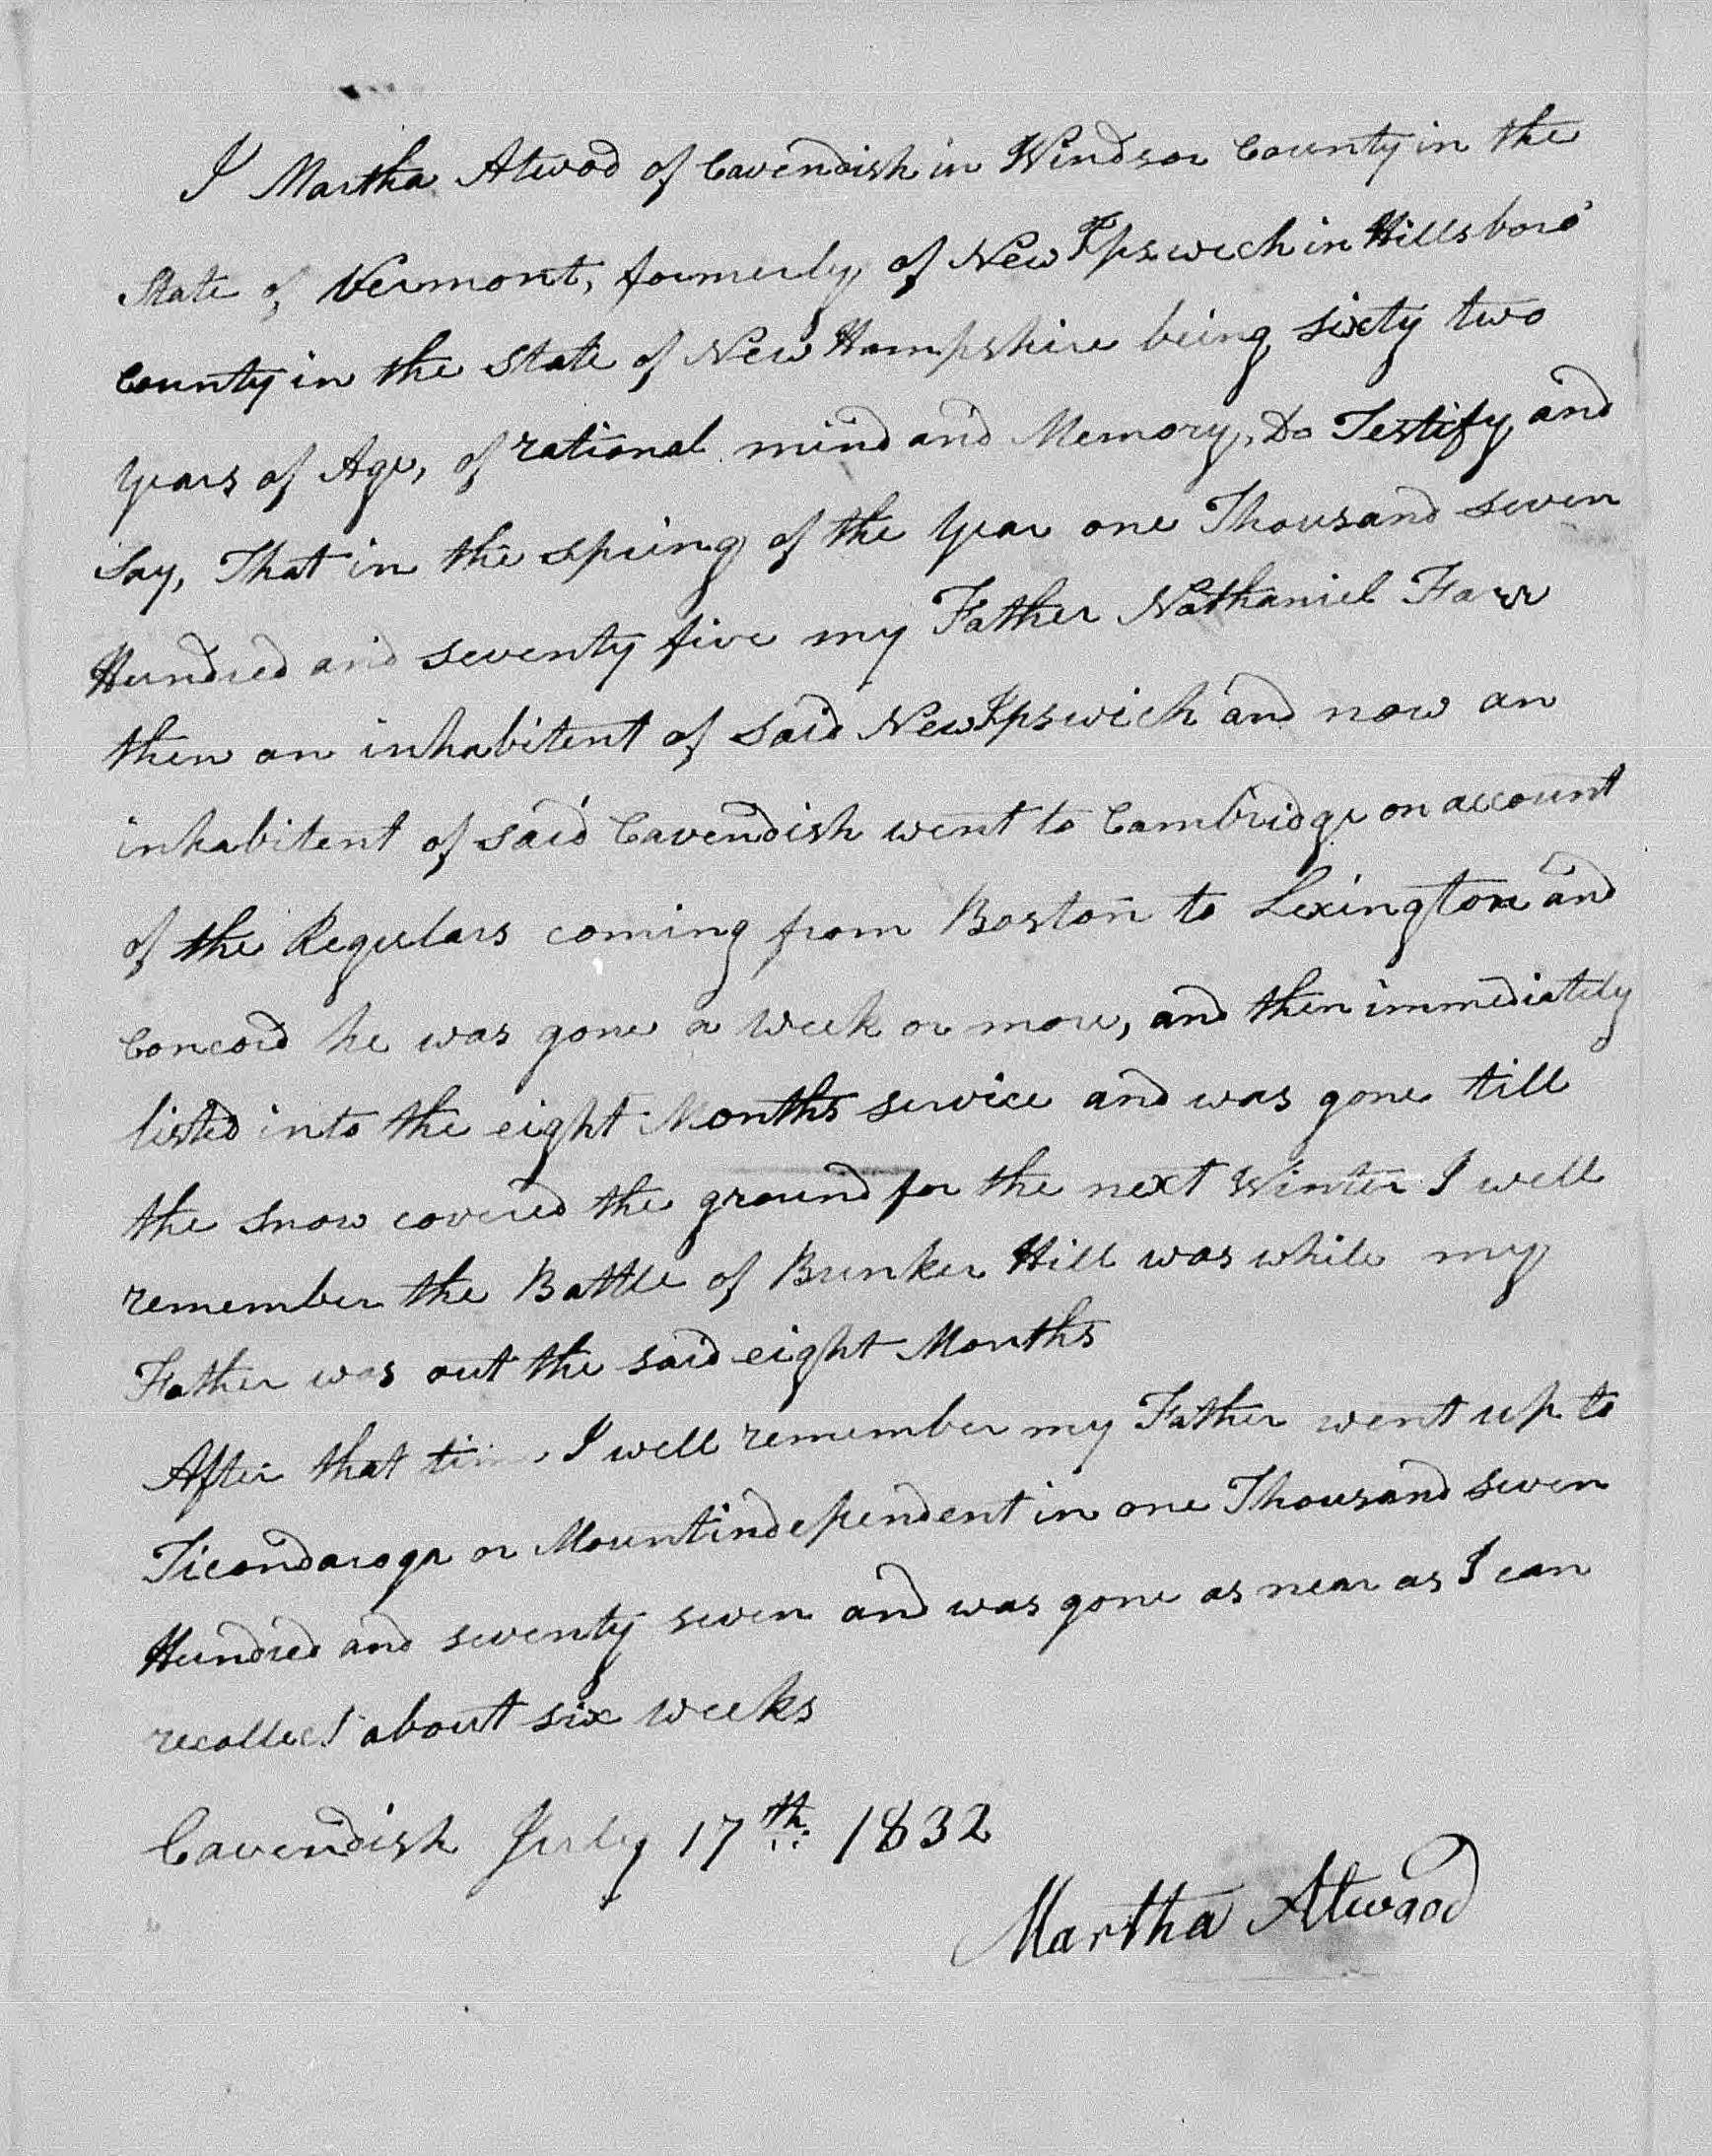 I Martha Atwood of Cavendish in Windsor County in the
State of Vermont, formerly of New Ipswich in Hillsboro'
County in the State of New Hampshire being sixty two
years of Age, of rational mind and Memory, Do Testify and
Say, That in the spring of the year one Thousand seven
Hundred and seventy five my Father Nathaniel Farr
then an inhabitent of said New Ipswich and now an
inhabitent of said Cavendish went to Cambridge on account
of the Regulars coming from Boston to Lexington and
Concord he was gone a week or more, and then immediately
listed into the eight Months service and was gone till
the snow covered the ground for the next Winter I well
remember the Battle of Bunker Hill was while my
Father was out the said eight Months
After that time I well remember my Father went up to
Ticondaroga or Mountindependent in one Thousand seven
Hundred and seventy seven and was gone as near as I can
recollect about six weeks
Cavendish July 17th 1832
Martha Atwood